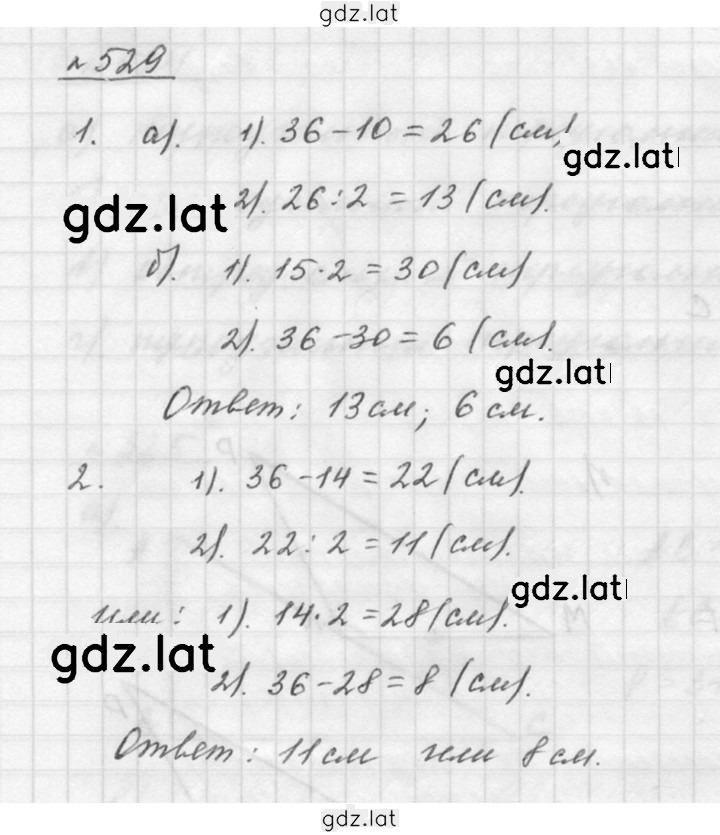 gdz.lat
№529
1. а). 1). 36-10=26 (см)
gdz.lat
2). 26:2=13 (см).
gdz.lat
б). 1). 15·2=30 (см)
2). 36-30=6 (см).
gdz.lat
Ответ: 13 см; 6 см.
2. 1). 36-14=22 (см).
2). 22:2=11 (см).
gdz.lat
или: 1). 14·2=28 (см).
gdz.lat
2). 36-28=8 (см).
Ответ: 11 см или 8 см.
gdz.lat